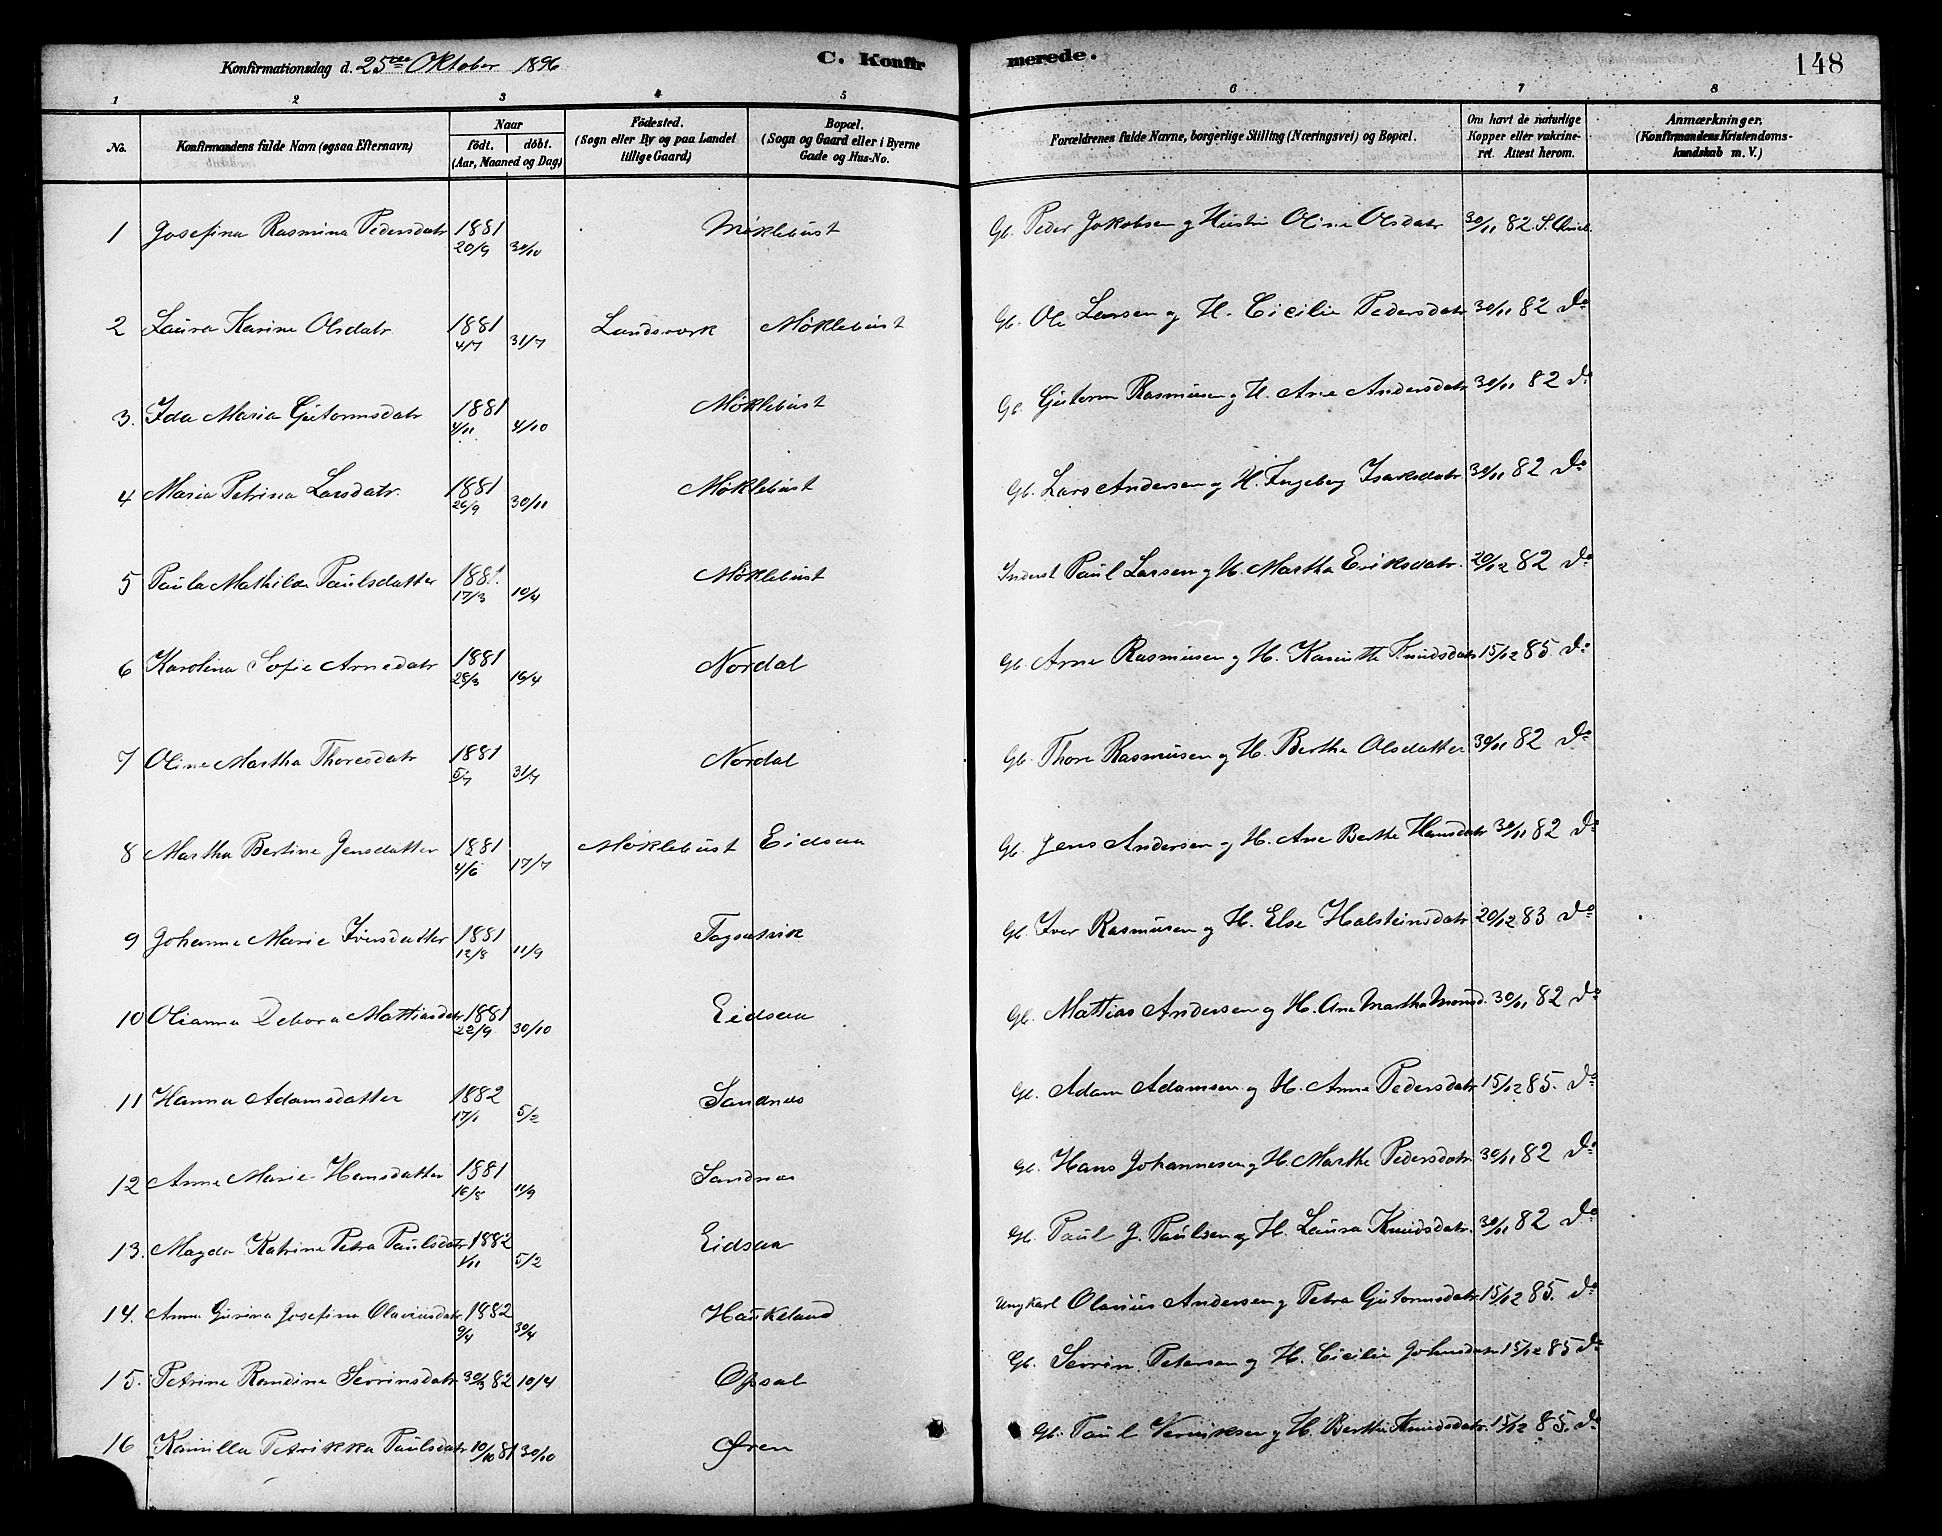 Konfirmationsdag d. 25de Oktober 1896 C. Konfirmerede. 148
1 2 3 4 5 6 7 8
No. Konfirmandens fulde Navn (ogsaa Efternavn) Naar födt. döbt. (Aar, Maaned og Dag) Födested. (Sogn eller By og paa Landet tillige Gaard) Bopæl. (Sogn og Gaard eller i Byerne Gade og Hus-No. Forældrenes fulde Navne, borgerlige Stilling (Næringsvei) og Bopæl. Om havt de naturlige Kopper eller vakcineret. Attest herom. Anmærkninger. (Konfirmandens Kristendomskundskab m. V.)
1 Josefina Rasmina Pedersdatr 1881 20/9 30/10 Møklebust Gb. Peder Jakobsen og Hustru Oline Olsdatr 30/11 82
2 Laura Karine Olsdatr 1881 4/7 31/7 Landsverk Møklebust Gb. Ole Larsen og H. Cicilie Pedersdatr 30/11 82 do
3. Ida Maria Gutormsdatr 1881 4/11 4/10 Møklebust Gb. Gutorm Rasmusen og H. Ane Andersdatr 30/11 82 do
4 Maria Petrina Larsdatr. 1881 26/9 30/11 Møklebust Gb. Lars Andersen og H. Ingeborg Isaksdatr 30/11 82 do
5 Paula Mathilde Paulsdatter 1881. 17/3 10/4 Møklebust Inderst Paul Larsen og H. Martha Eriksdatr. 20/12 82 do
6 Karolina Sofie Arnedatr 1881 28/3 19/4 Nordal Gb. Arne Rasmusen og H. Knudsdatr 15/12 85. do
7 Oline Martha Thoresdatr 1881 5/7 31/7 Nordal Gb. Thore Rasmusen og H. Berthe Olsdatter 30/11 82 do
8 Martha Bertine Jensdatter 1881 4/6 17/7 Møklebust Eidsaa Gb. Jens Andersen og H. Ane Berthe Hansdatr 30/11 82 do
9 Johanne Marie Iversdatter 1881 12/8 11/9 Gb. Iver Rasmusen og H. Else Halsteinsdatr 20/12 83 do
10 Olianna Debora Mattiasdatr 1881 22/9 30/10 Eidsaa Gb. Mattias Andersen og H. Ane Martha Monsd. 30/11 82 do
11 Hanna Adamsdatter 1882 17/1 5/2 Sandnæs Gb. Adam Adamsen og H. Anne Pedersdatr 15/12 85. do
12 Anne Marie Hansdatter 1881 16/8 11/9 Sandnæs Gb. Hans Johannesen og H. Marthe Pedersdatr 30/11 82 do
13. Magda Katrine Petra Paulsdatr 1882 1/11 5/2 Eidsaa Gb. Paul J. Paulsen og H. Laura Knudsdatr. 30/11 82 do
14. Anna Gurina Josefina Olaviusdatr 1882 9/4 30/4 Haukeland Ungkarl Olavius Andersen og Petra Gutormsdatr 15/12 85. do
15. Petrine Randine Severinsdatr 30/3 82 10/4 Opsal Gb. Sevrin Petersen og H. Cicilie Johnsdatr 15/12 85 do
16 Kamilla Petrikka Paulsdatr 10/10 81 30/10 Øren Gb. Paul og H. Berthe Knudsdatr. 15/12 85. do